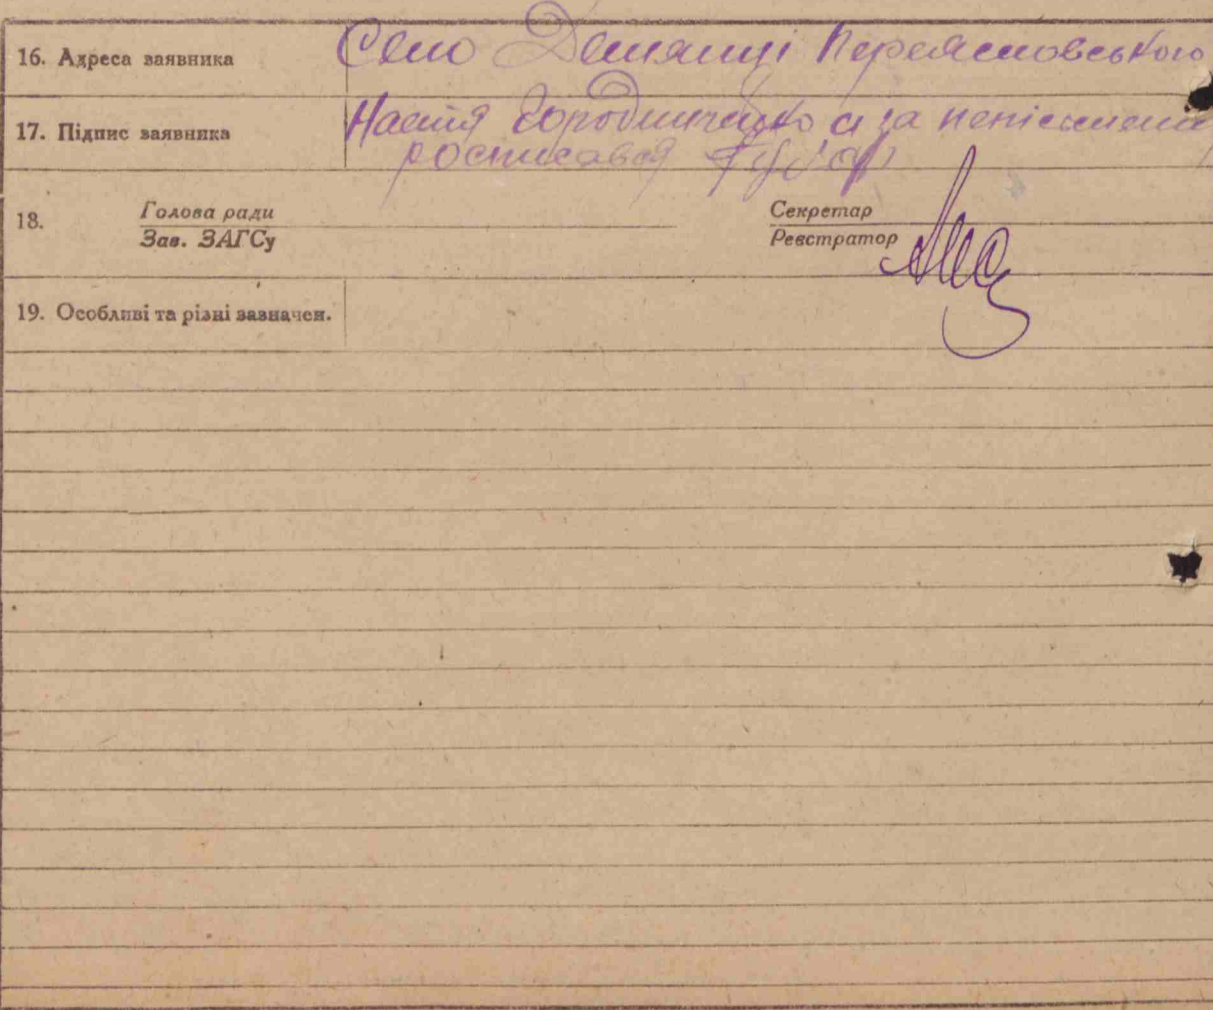 16. Адреса заявника Село Демянці Переяславського
17. Підпис заявника Настя Городниченко а за неписьмену
росписався
18. Голова ради
Зав. ЗАГСу
Секретар
Реєстратор
19. Особливі та різні зазначен.